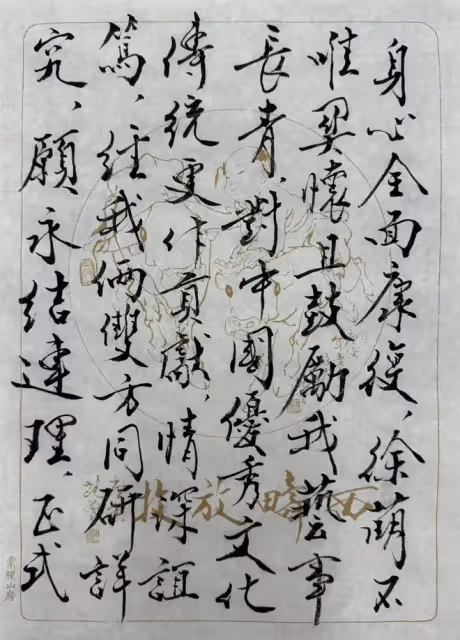 身心全面康復，徐萌不
唯関懷且鼓勵我藝事
長青，對中國優秀文化
傳統更作貢獻，情深誼
篤，經我倆雙方同研詳
究，願永結連理，正式
西疇放牧
索縵山房